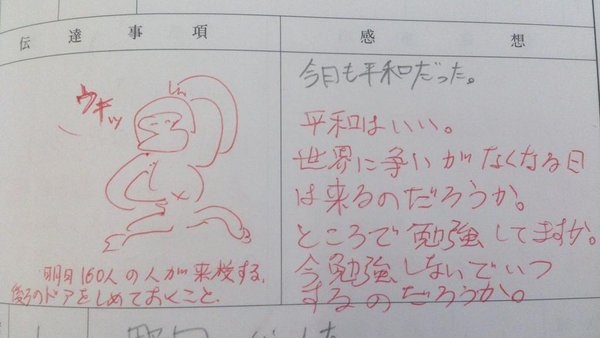 伝達事項
感想
ウキッ
明日160人の人が来校する。
後ろのドアをしめておくこと。
今日も平和だった。
平和はいい。
世界に争いがなくなる日
は来るのだろうか。
ところで勉強してますか。
今勉強しないでいつ
するのだろうか。